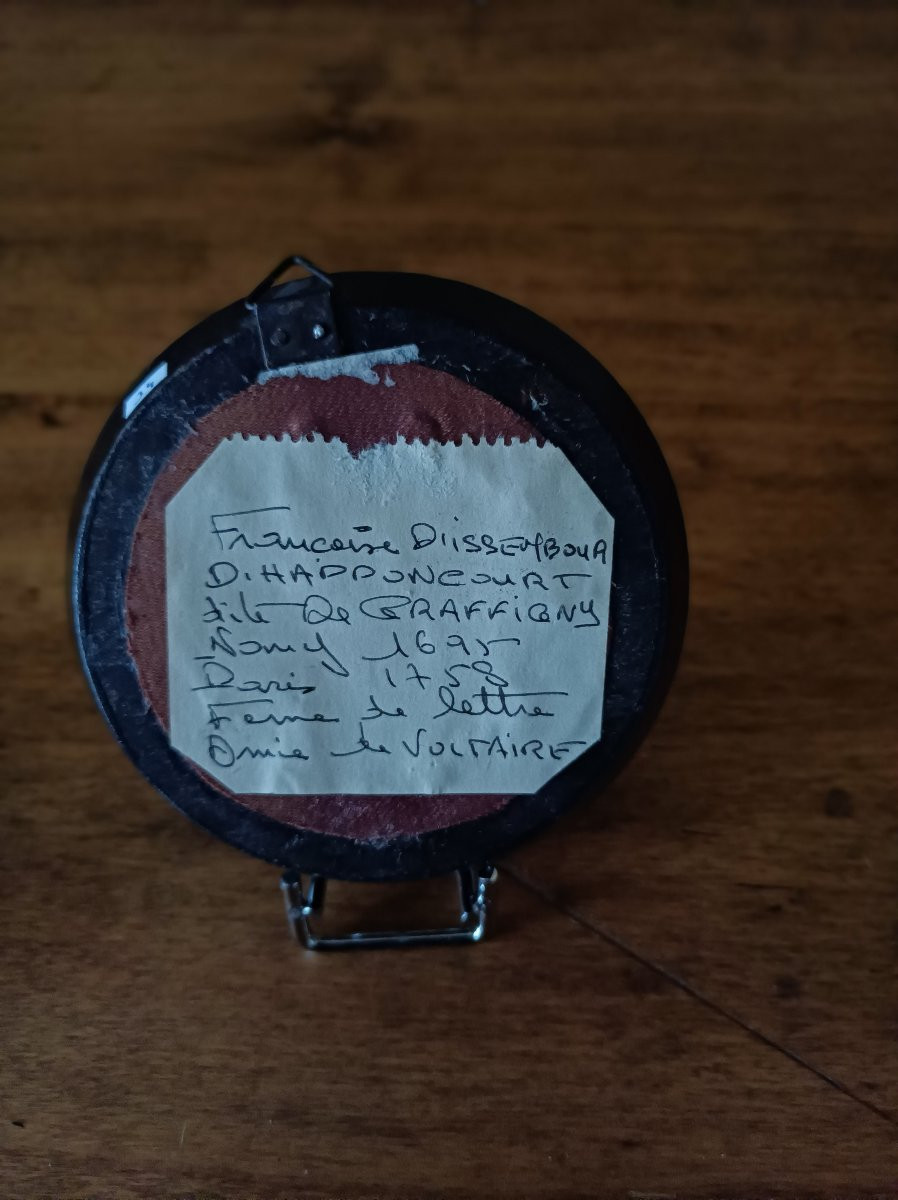 Francoise DiiSSEMBOUR
D.HAPPONCOURT
dite De GRAFFiGNY
Nancy 1695
Paris 1758
Feme de lettre
Amie de VOLTAIRE